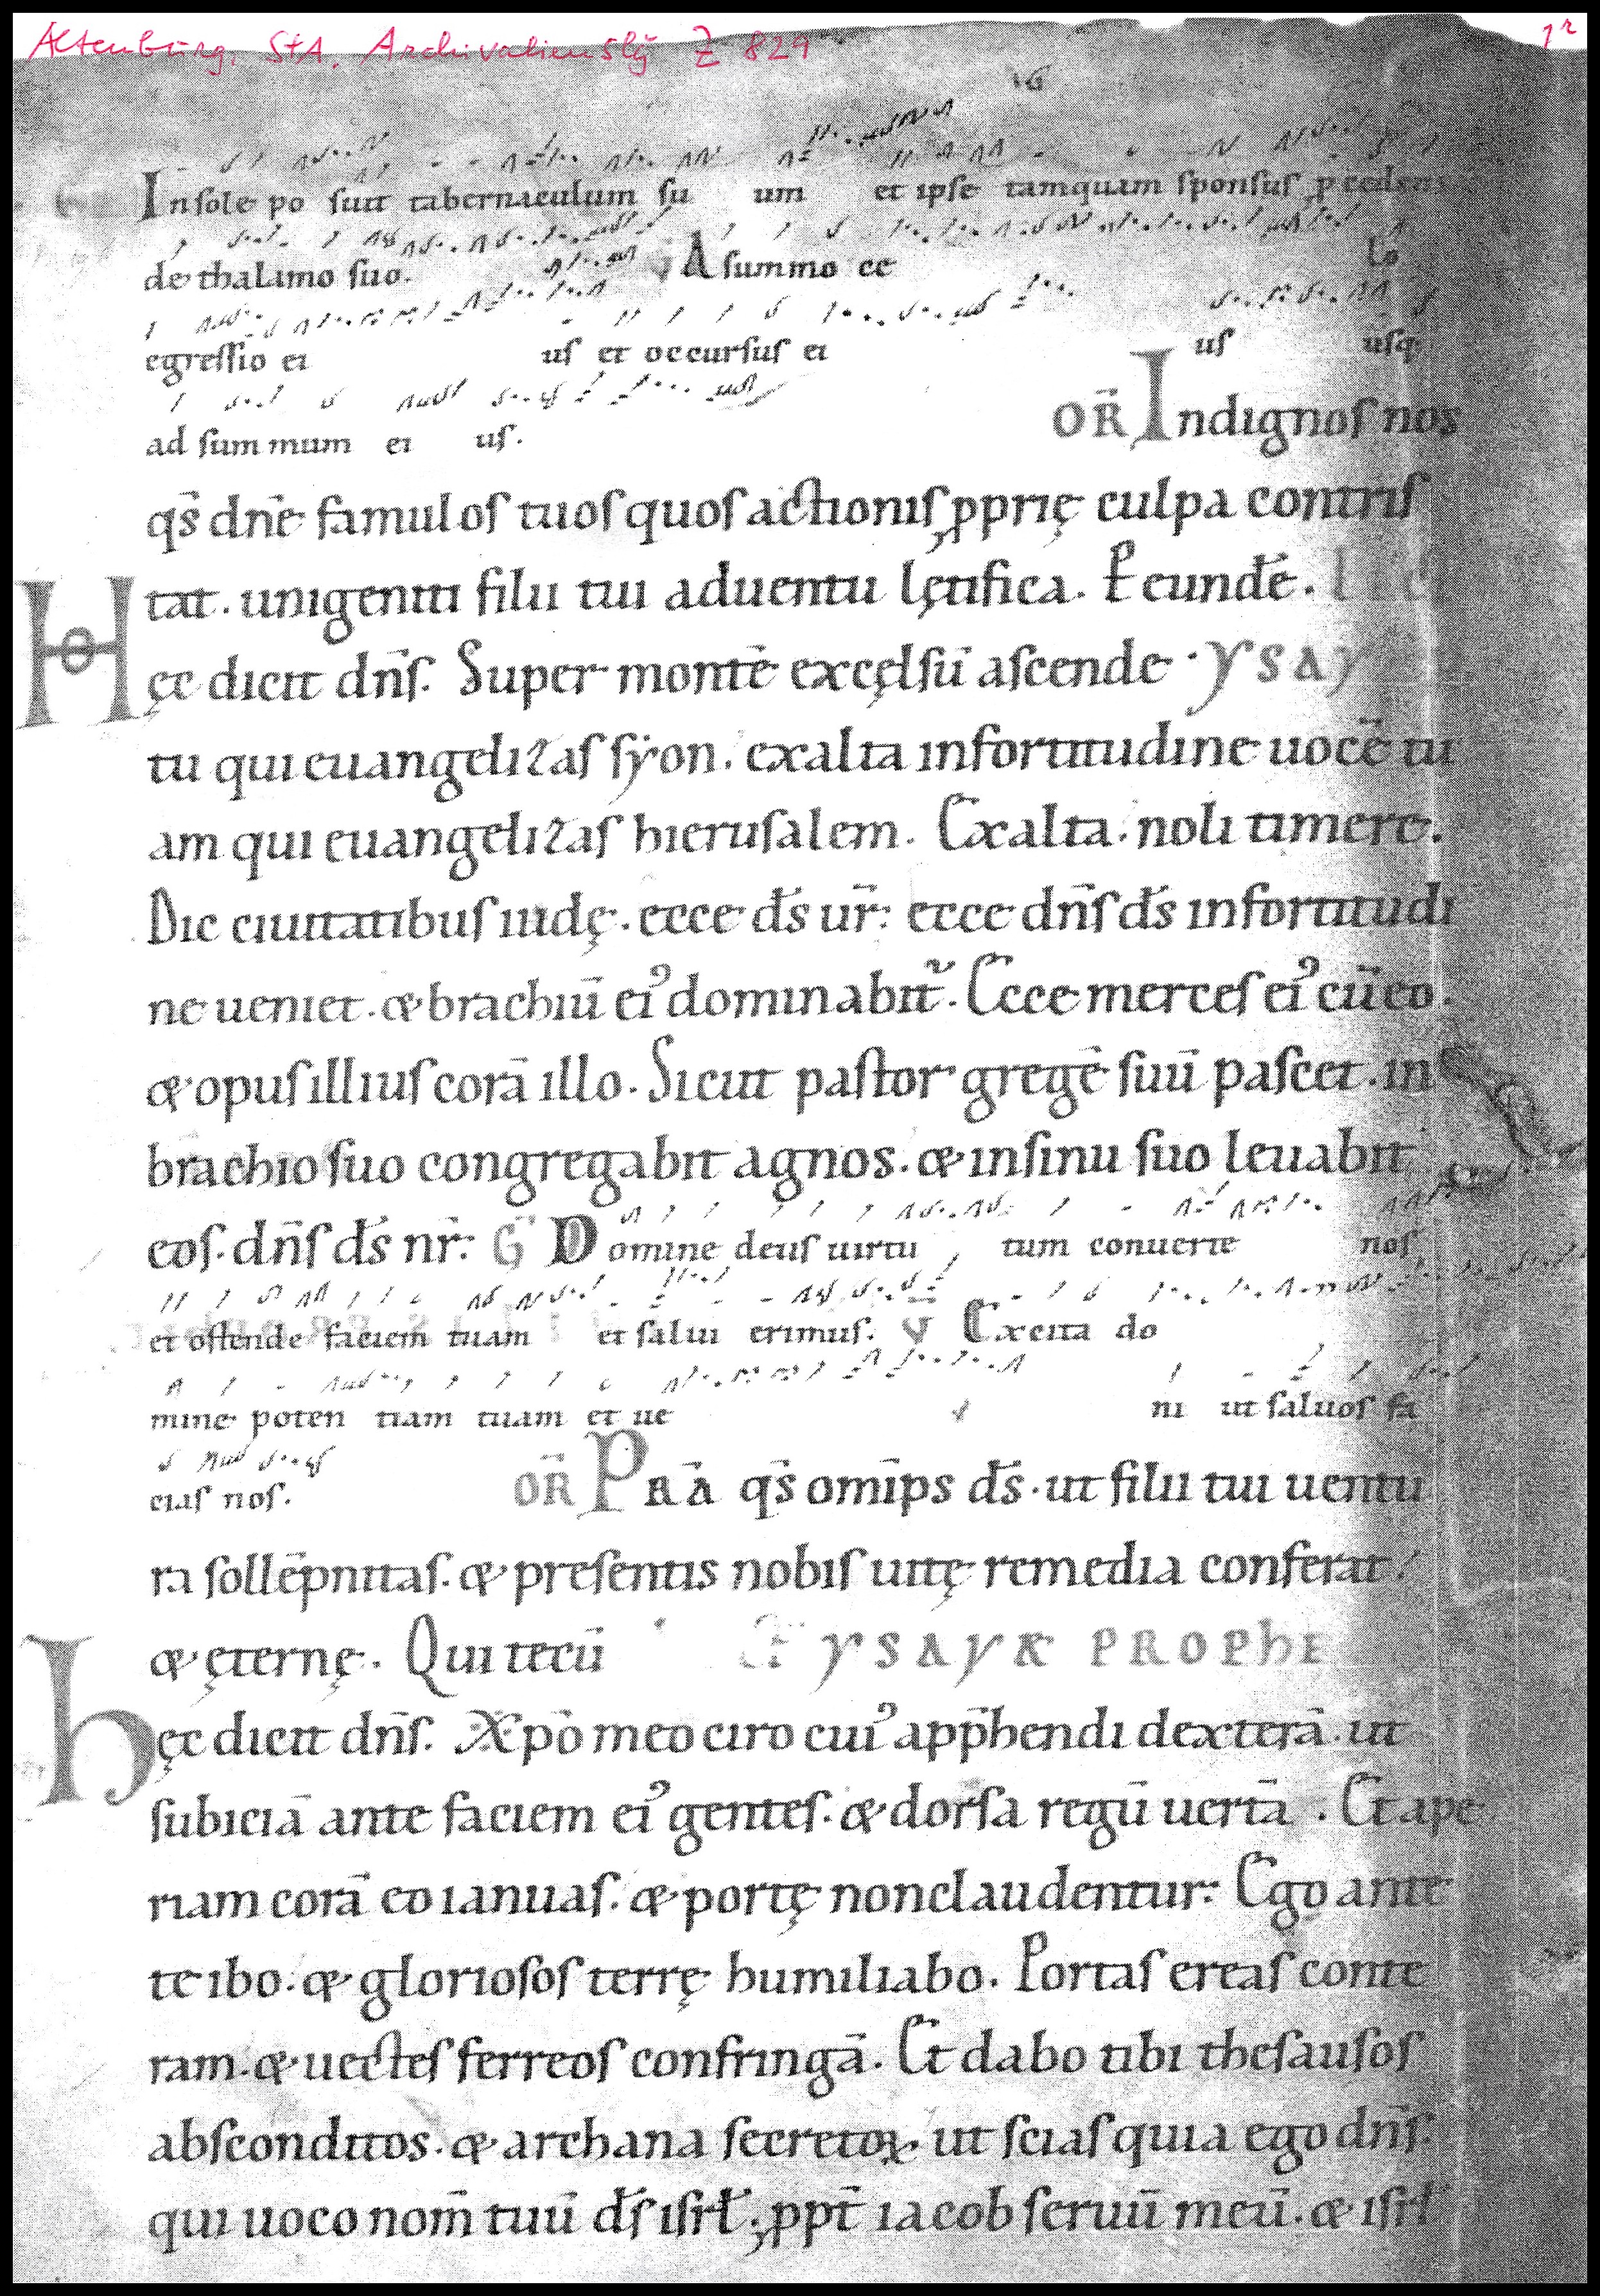 Altenburg, StA. Archivaliensly Z 829 1r
G
Insole po suit tabernaculum su um et ipse tamquam sponsus ꝓcedens
de thalamo suo. ℣ A summo ce lo
egressio ei us et occursus ei us usq;
ad summum ei us.
OR̄ Indignos nos
qs̄ dn̄e famulos tuos quos actionis ꝓprię culpa contris
tat. unigeniti filii tui aduentu lętifica. P eunđe.
Hęc dicit dn̄s. Super montē excęlsū ascende · YSAY
tu qui euangelizas sẏon. exalta infortitudine uocē tu
am qui euangelizas hierusalem. Exalta. noli timere.
Dic ciuitatibus iudę. ecce ds̄ ur̄: ecce dn̄s ds̄ infortitudi
ne ueniet. & brachiū eiꝰ dominabit᷑. Ecce merces eiꝰ cū eo.
& opus illius corā illo. Sicut pastor gregē suū pascet. in
brachio suo congregabit agnos. & insinu suo leuabit
eos. dn̄s ds̄ nr̄: G Domine deus uirtu tum conuerte nos
et ostende faciem tuam et salui erimus. ℣ Excita do
mine poten tiam tuam et ue ni ut saluos fa
cias nos.
OR̄ PRĀ qs̄ omīps ds̄. ut filii tui uentu
ra sollēpnitas. & presentis nobis uitę remedia conferat.
& ęternę. Qui tecū YSAYÆ PROPHE
hęc dicit dn̄s. Xp̄o meo ciro cuiꝰ app̄hendi dexterā. ut
subiciā ante faciem eiꝰ gentes. & dorsa regū uertā. Et ape
riam corā eo ianuas. & portę nonclaudentur: Ego ante
te ibo. & gloriosos terrę humiliabo. Portas ereas conte
ram. & uectes ferreos confringā. Et dabo tibi thesausos
absconditos. & archana secretoꝝ. ut scias quia ego dn̄s.
qui uoco nom̄ tuū ds̄ isrł. ꝓpt̄ iacob seruū meū. & isrł